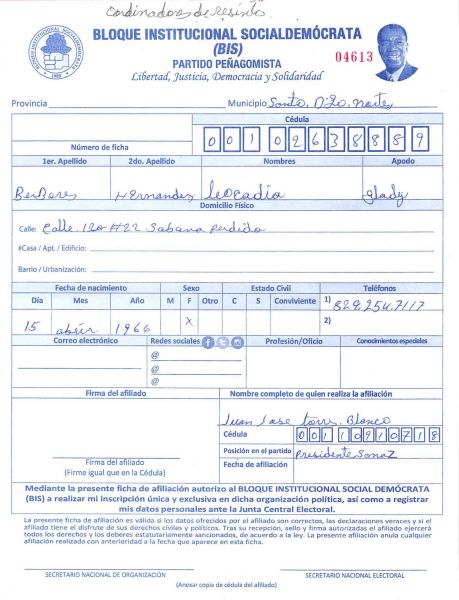 Cordinadores de resinto
BLOQUE INSTITUCIONAL SOCIALDEMÓCRATA
(BIS)
PARTIDO PEÑAGOMISTA
Libertad, Justicia, Democracia y Solidaridad
04613
Provincia Municipio Santo. Dgo. norte
Número de ficha
Cédula
00102638889
1er. Apellido 2do. Apellido Nombres Apodo
Hernandez leocadia glady
Domicilio Físico
Calle: Calle. 120 #22 Sabana perdida
#Casa / Apt. / Edificio:
Barrio / Urbanización:
Fecha de nacimiento Sexo Estado Civil Teléfonos
Día Mes Año M F Otro C S Conviviente 1) 829.254.7117
2)
15 abrir 1966 X
Correo electrónico Redes sociales Profesión/Oficio Conocimientos especiales
@
@
@
Firma del afiliado Nombre completo de quien realiza la afiliación
Juan Jase torres. Blanco
Cédula 00110910718
Posición en el partido Presidente
Fecha de afiliación
Firma del afiliado
(Firme igual que en la Cédula)
Mediante la presente ficha de afiliación autorizo al BLOQUE INSTITUCIONAL SOCIAL DEMÓCRATA
(BIS) a realizar mi inscripción única y exclusiva en dicha organización política, así como a registrar
mis datos personales ante la Junta Central Electoral.
La presente ficha de afiliación es válida si los datos ofrecidos por el afiliado son correctos, las declaraciones veraces y si el
afiliado tiene el disfrute de sus derechos civiles y políticos. Tras su recepción, sello y firma autorizadas el afiliado ejercerá
todos los derechos y los deberes estatutariamente sancionados, de acuerdo a la ley. La presente afiliación anula cualquier
afiliación realizada con anterioridad a la fecha que aparece en esta ficha.
SECRETARIO NACIONAL DE ORGANIZACIÓN SECRETARIO NACIONAL ELECTORAL
(Anexar copia de cédula del afiliado)